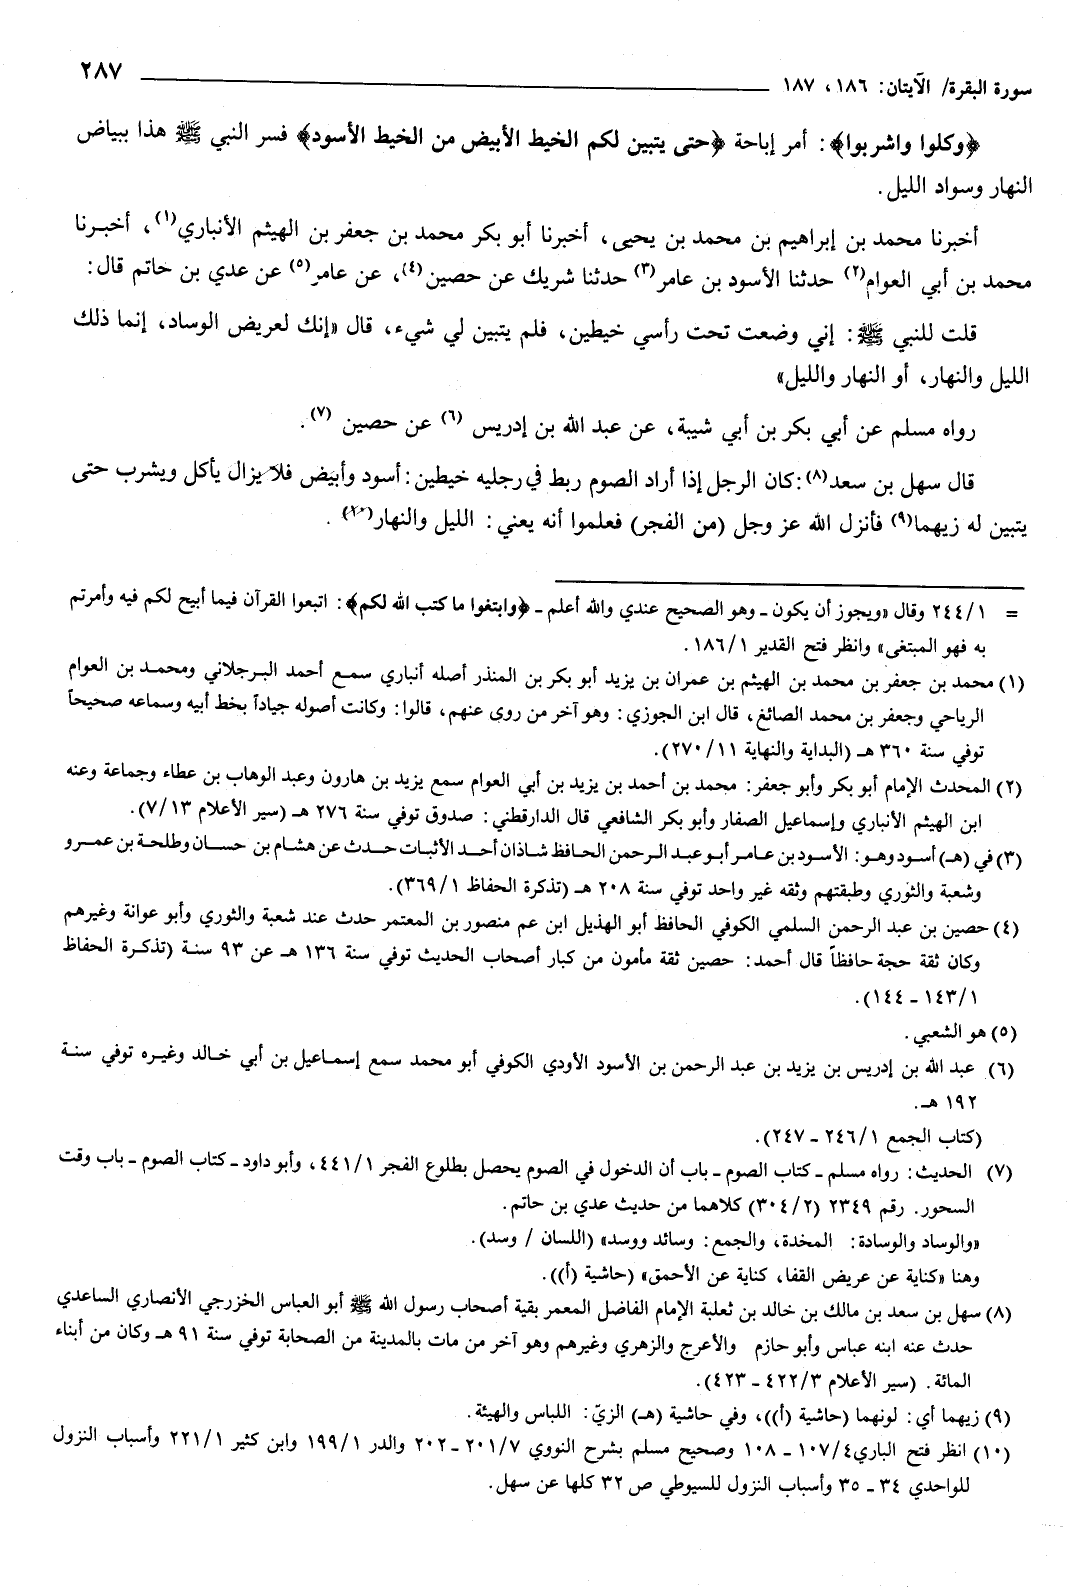 سورة البقرة/ الآيتان: ١٨٦، ١٨٧ ٢٨٧
﴿وكلوا واشربوا﴾: أمر إباحة ﴿حتى يتبين لكم الخيط الأبيض من الخيط الأسود﴾ فسر النبي ﷺ هذا ببياض
النهار وسواد الليل.
أخبرنا محمد بن إبراهيم بن محمد بن يحيى، أخبرنا أبو بكر محمد بن جعفر بن الهيثم الأنباري(١)، أخبرنا
محمد بن أبي العوام(٢) حدثنا الأسود بن عامر(٣) حدثنا شريك عن حصين(٤)، عن عامر(٥) عن عدي بن حاتم قال:
قلت للنبي ﷺ: إني وضعت تحت رأسي خيطين، فلم يتبين لي شيء، قال «إنك لعريض الوساد، إنما ذلك
الليل والنهار، أو النهار والليل»
رواه مسلم عن أبي بكر بن أبي شيبة، عن عبد الله بن إدريس (٦) عن حصين (٧).
قال سهل بن سعد(٨): كان الرجل إذا أراد الصوم ربط في رجليه خيطين: أسود وأبيض فلا يزال يأكل ويشرب حتى
يتبين له زيهما(٩) فأنزل الله عز وجل (من الفجر) فعلموا أنه يعني: الليل والنهار(١٠).
= ٢٤٤/١ وقال «ويجوز أن يكون ـ وهو الصحيح عندي والله أعلم ـ ﴿وابتغوا ما كتب الله لكم﴾: اتبعوا القرآن فيما أبيح لكم فيه وأمرتم
به فهو المبتغى» وانظر فتح القدير ١٨٦/١.
(١) محمد بن جعفر بن محمد بن الهيثم بن عمران بن يزيد أبو بكر بن المنذر أصله أنباري سمع أحمد البرجلاني ومحمد بن العوام
الرياحي وجعفر بن محمد الصائغ، قال ابن الجوزي: وهو آخر من روى عنهم، قالوا: وكانت أصوله جياداً بخط أبيه وسماعه صحيحاً
توفي سنة ٣٦٠ هـ (البداية والنهاية ٢٧٠/١١).
(٢) المحدث الإمام أبو بكر وأبو جعفر: محمد بن أحمد بن يزيد بن أبي العوام سمع يزيد بن هارون وعبد الوهاب بن عطاء وجماعة وعنه
ابن الهيثم الأنباري وإسماعيل الصفار وأبو بكر الشافعي قال الدارقطني: صدوق توفي سنة ٢٧٦ هـ (سير الأعلام ٧/١٣).
(٣) في (هـ) أسود وهو: الأسود بن عامر أبو عبد الرحمن الحافظ شاذان أحد الأثبات حدث عن هشام بن حسان وطلحة بن عمرو
وشعبة والثوري وطبقتهم وثقه غير واحد توفي سنة ٢٠٨ هـ (تذكرة الحفاظ ٣٦٩/١).
(٤) حصين بن عبد الرحمن السلمي الكوفي الحافظ أبو الهذيل ابن عم منصور بن المعتمر حدث عند شعبة والثوري وأبو عوانة وغيرهم
وكان ثقة حجة حافظاً قال أحمد: حصين ثقة مأمون من كبار أصحاب الحديث توفي سنة ١٣٦ هـ عن ٩٣ سنة (تذكرة الحفاظ
١٤٣/١ ـ ١٤٤).
(٥) هو الشعبي.
(٦) عبد الله بن إدريس بن يزيد بن عبد الرحمن بن الأسود الأودي الكوفي أبو محمد سمع إسماعيل بن أبي خالد وغيره توفي سنة
١٩٢ هـ.
(كتاب الجمع ٢٤٦/١ ـ ٢٤٧).
(٧) الحديث: رواه مسلم ـ كتاب الصوم ـ باب أن الدخول في الصوم يحصل بطلوع الفجر ٤٤١/١، وأبو داود ـ كتاب الصوم ـ باب وقت
السحور. رقم ٢٣٤٩ (٣٠٤/٢) كلاهما من حديث عدي بن حاتم.
«والوساد والوسادة: المخدة، والجمع: وسائد ووسد» (اللسان / وسد).
وهنا «كناية عن عريض القفا، كناية عن الأحمق» (حاشية (أ)).
(٨) سهل بن سعد بن مالك بن خالد بن ثعلبة الإمام الفاضل المعمر بقية أصحاب رسول الله ﷺ أبو العباس الخزرجي الأنصاري الساعدي
حدث عنه ابنه عباس وأبو حازم والأعرج والزهري وغيرهم وهو آخر من مات بالمدينة من الصحابة توفي سنة ٩١ هـ وكان من أبناء
المائة. (سير الأعلام ٤٢٢/٣ ـ ٤٢٣).
(٩) زيهما أي: لونهما (حاشية (أ))، وفي حاشية (هـ) الزيّ: اللباس والهيئة.
(١٠) انظر فتح الباري ١٠٧/٤ ـ ١٠٨ وصحيح مسلم بشرح النووي ٢٠١/٧ ـ ٢٠٢ والدر ١٩٩/١ وابن كثير ٢٢١/١ وأسباب النزول
للواحدي ٣٤ ـ ٣٥ وأسباب النزول للسيوطي ص ٣٢ كلها عن سهل.